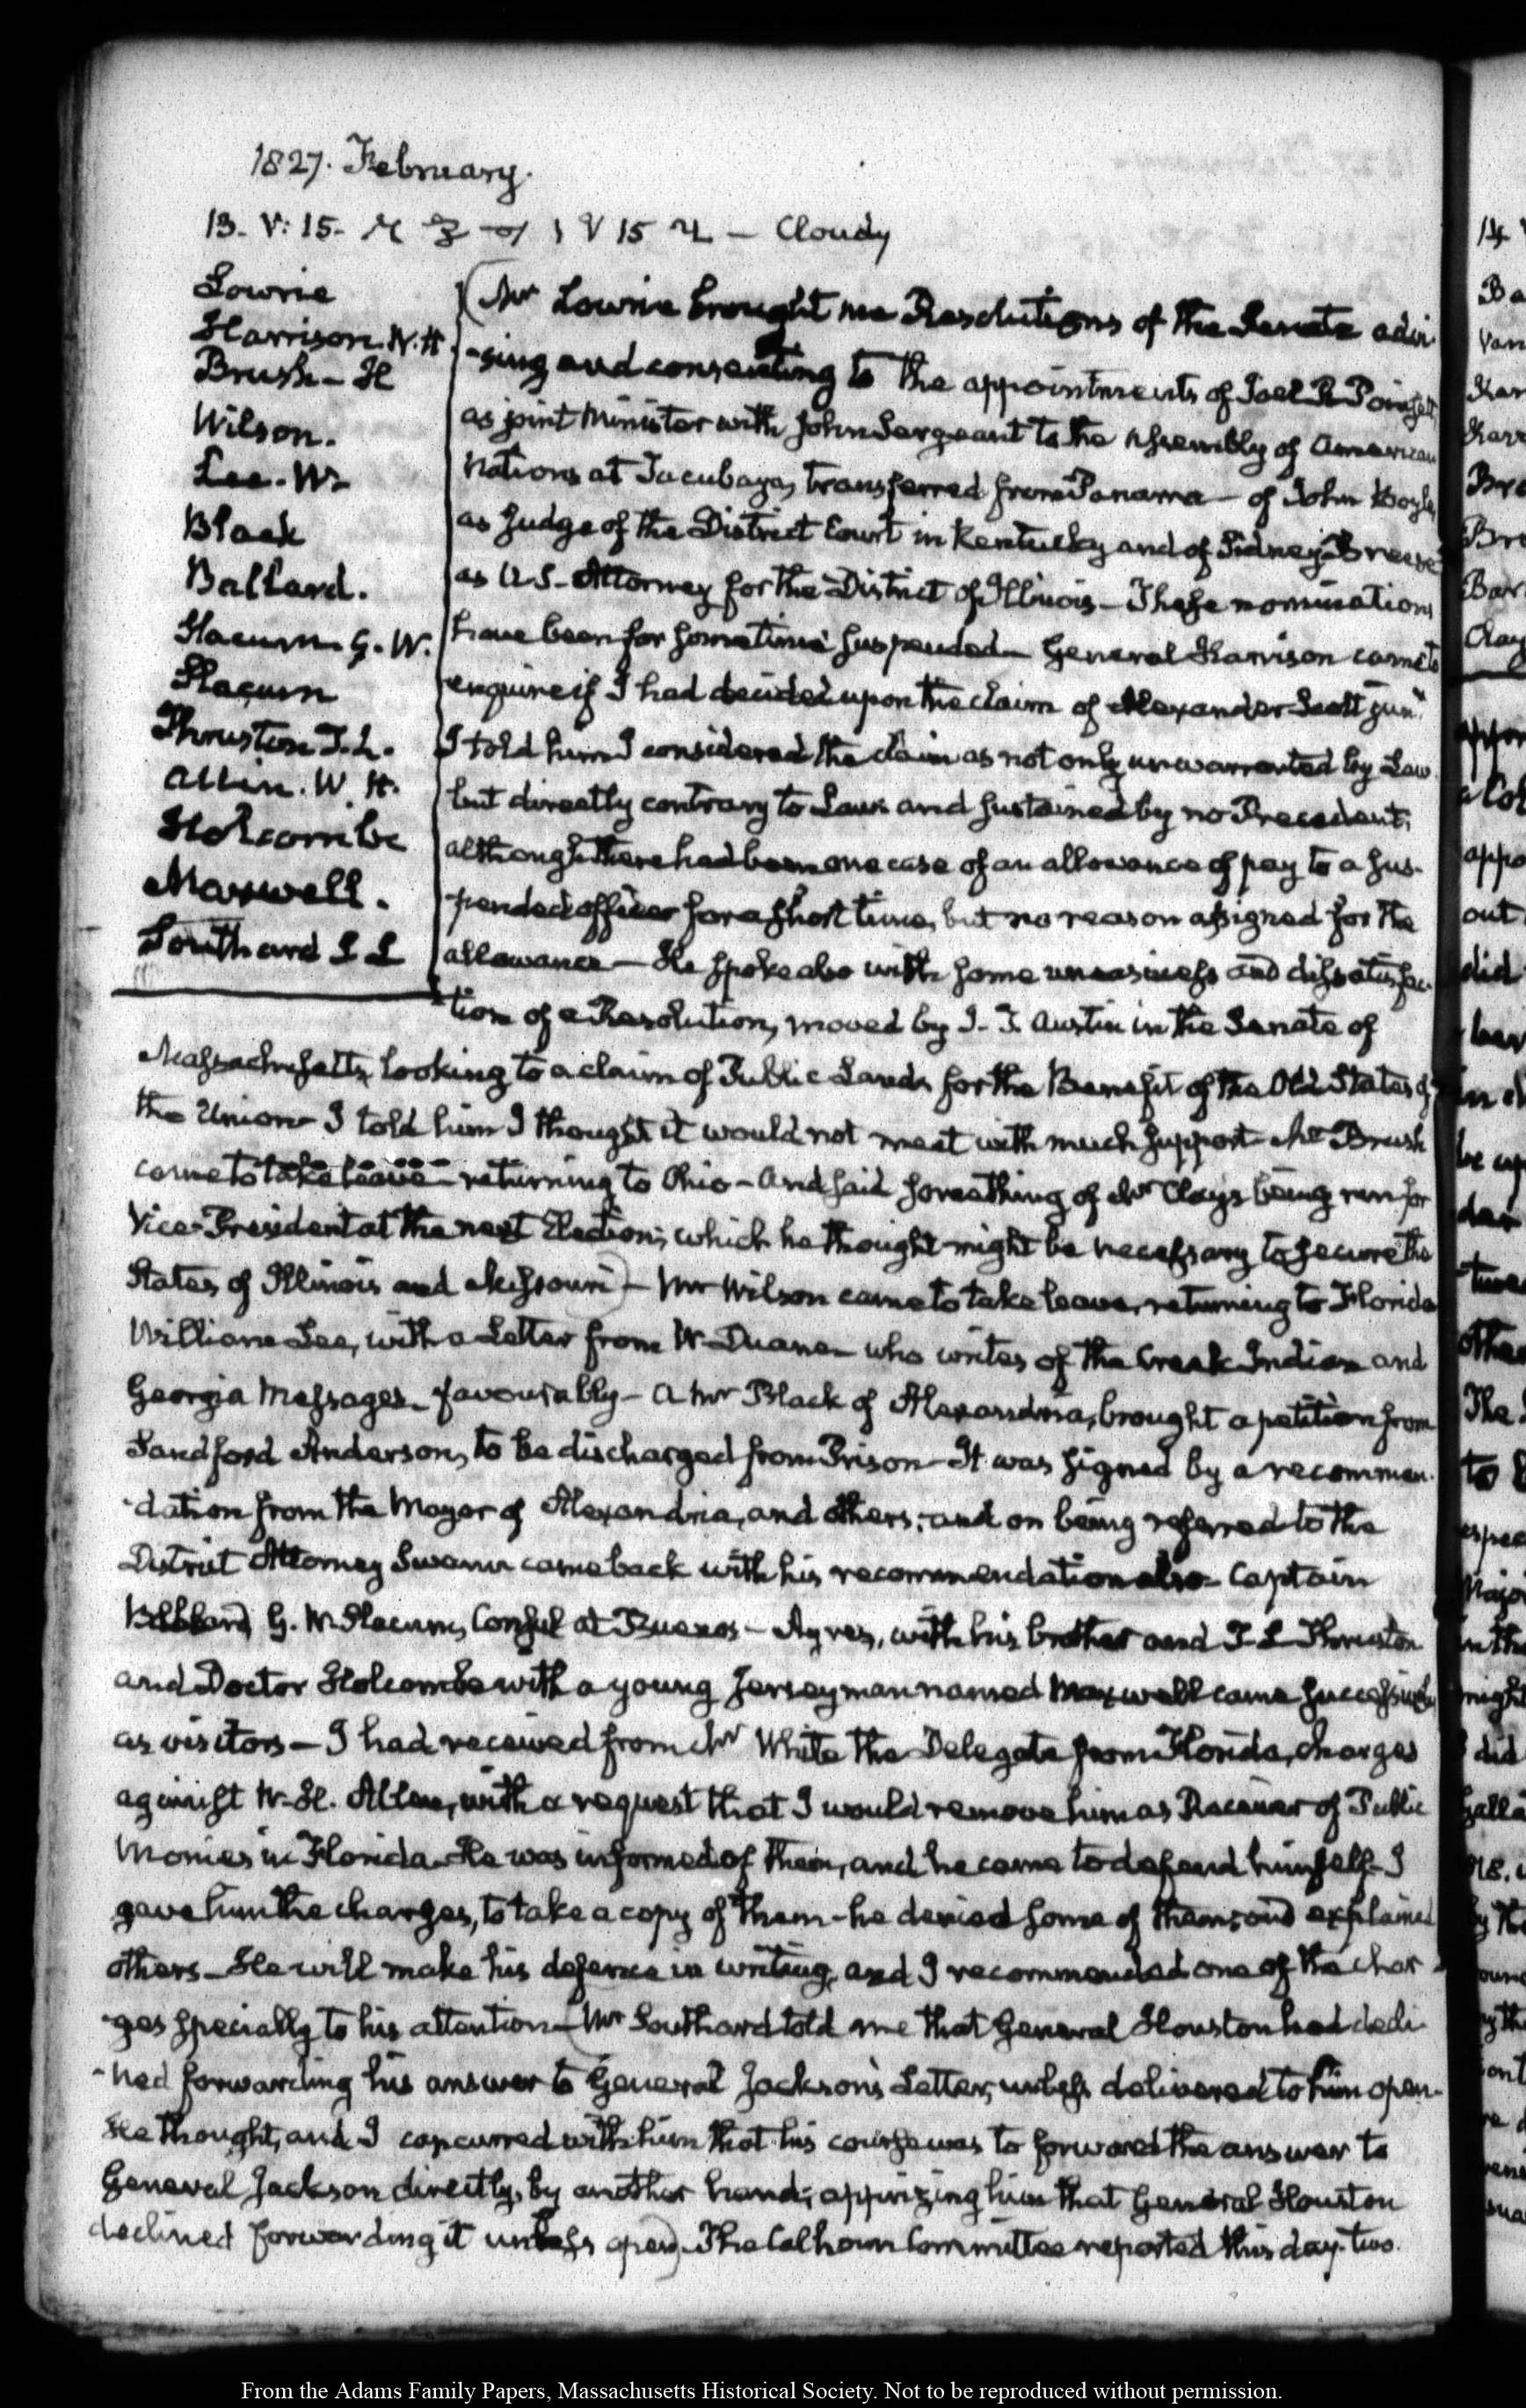 1827. February.
13. V: 15. V 15 — Cloudy
Lowrie
Harrison. W. H
Brush - H
Wilson.
Lee. W.
Black
Ballard.
Slacum G. W.
Slacum
Thruston T. L.
Allen. W. H.
Holcombe
Maxwell.
Southard S L
(Mr Lowrie brought me Resolutions of the Senate advi-
-sing and consenting to the appointments of Joel R Poinsett
as joint Minister with John Sergeant to the Assembly of American
Nations at Tacubaya, transferred from Panama — of John Boyle,
as Judge of the District Court in Kentucky and of Sidney Breese
as U.S. Attorney for the District of Illinois — These nominations
have been for sometime suspended — General Harrison came to
enquire if I had decided upon the claim of Alexander Scott junr.
I told him I considered the claim as not only unwarranted by Law
but directly contrary to Law and sustained by no Precedent;
although there had been one case of an allowance of pay to a sus-
-pended officer for a short time, but no reason assigned for the
allowance — He spoke also with some uneasiness and dissatisfac-
tion of a Resolution, moved by J. T. Austin in the Senate of
Massachusetts, looking to a claim of Public Lands for the Benefit of the Old States of
the Union — I told him I thought it would not meet with much support — Mr Brush
came to take leave — returning to Ohio — and said something of Mr Clay's being run for
Vice-President at the next Election; which he thought might be necessary to secure the
States of Illinois and Missouri) — Mr Wilson came to take leave, returning to Florida
William Lee, with a Letter from W. Duane — who writes of the Creek Indian and
Georgia Messages — favourably — A Mr Black of Alexandria, brought a petition from
Sandford Anderson, to be discharged from Prison — It was signed by a recommen-
-dation from the Mayor of Alexandria, and others; and on being referred to the
District Attorney Swann came back with his recommendation also — Captain
Ballard, G. W. Slacum, Consul at Buenos-Ayres, with his brother and T. L. Thruston
and Doctor Holcombe with a young Jerseyman named Maxwell came successively
as visitors — I had received from Mr White the Delegate from Florida, charges
against W. H. Allen, with a request that I would remove him as Receiver of Public
Monies in Florida. He was informed of them, and he came to defend himself — I
gave him the charges, to take a copy of them — he denied some of them; and explained
others — He will make his defence in writing, and I recommended one of the char-
-ges specially to his attention — (Mr Southard told me that General Houston had decli-
-ned forwarding his answer to General Jackson's Letter, unless delivered to him open.
He thought, and I concurred with him that his course was to forward the answer to
General Jackson directly, by another hand; apprizing him that General Houston
declined forwarding it unless open). The Calhoun Committee reported this day two
From the Adams Family Papers, Massachusetts Historical Society. Not to be reproduced without permission.